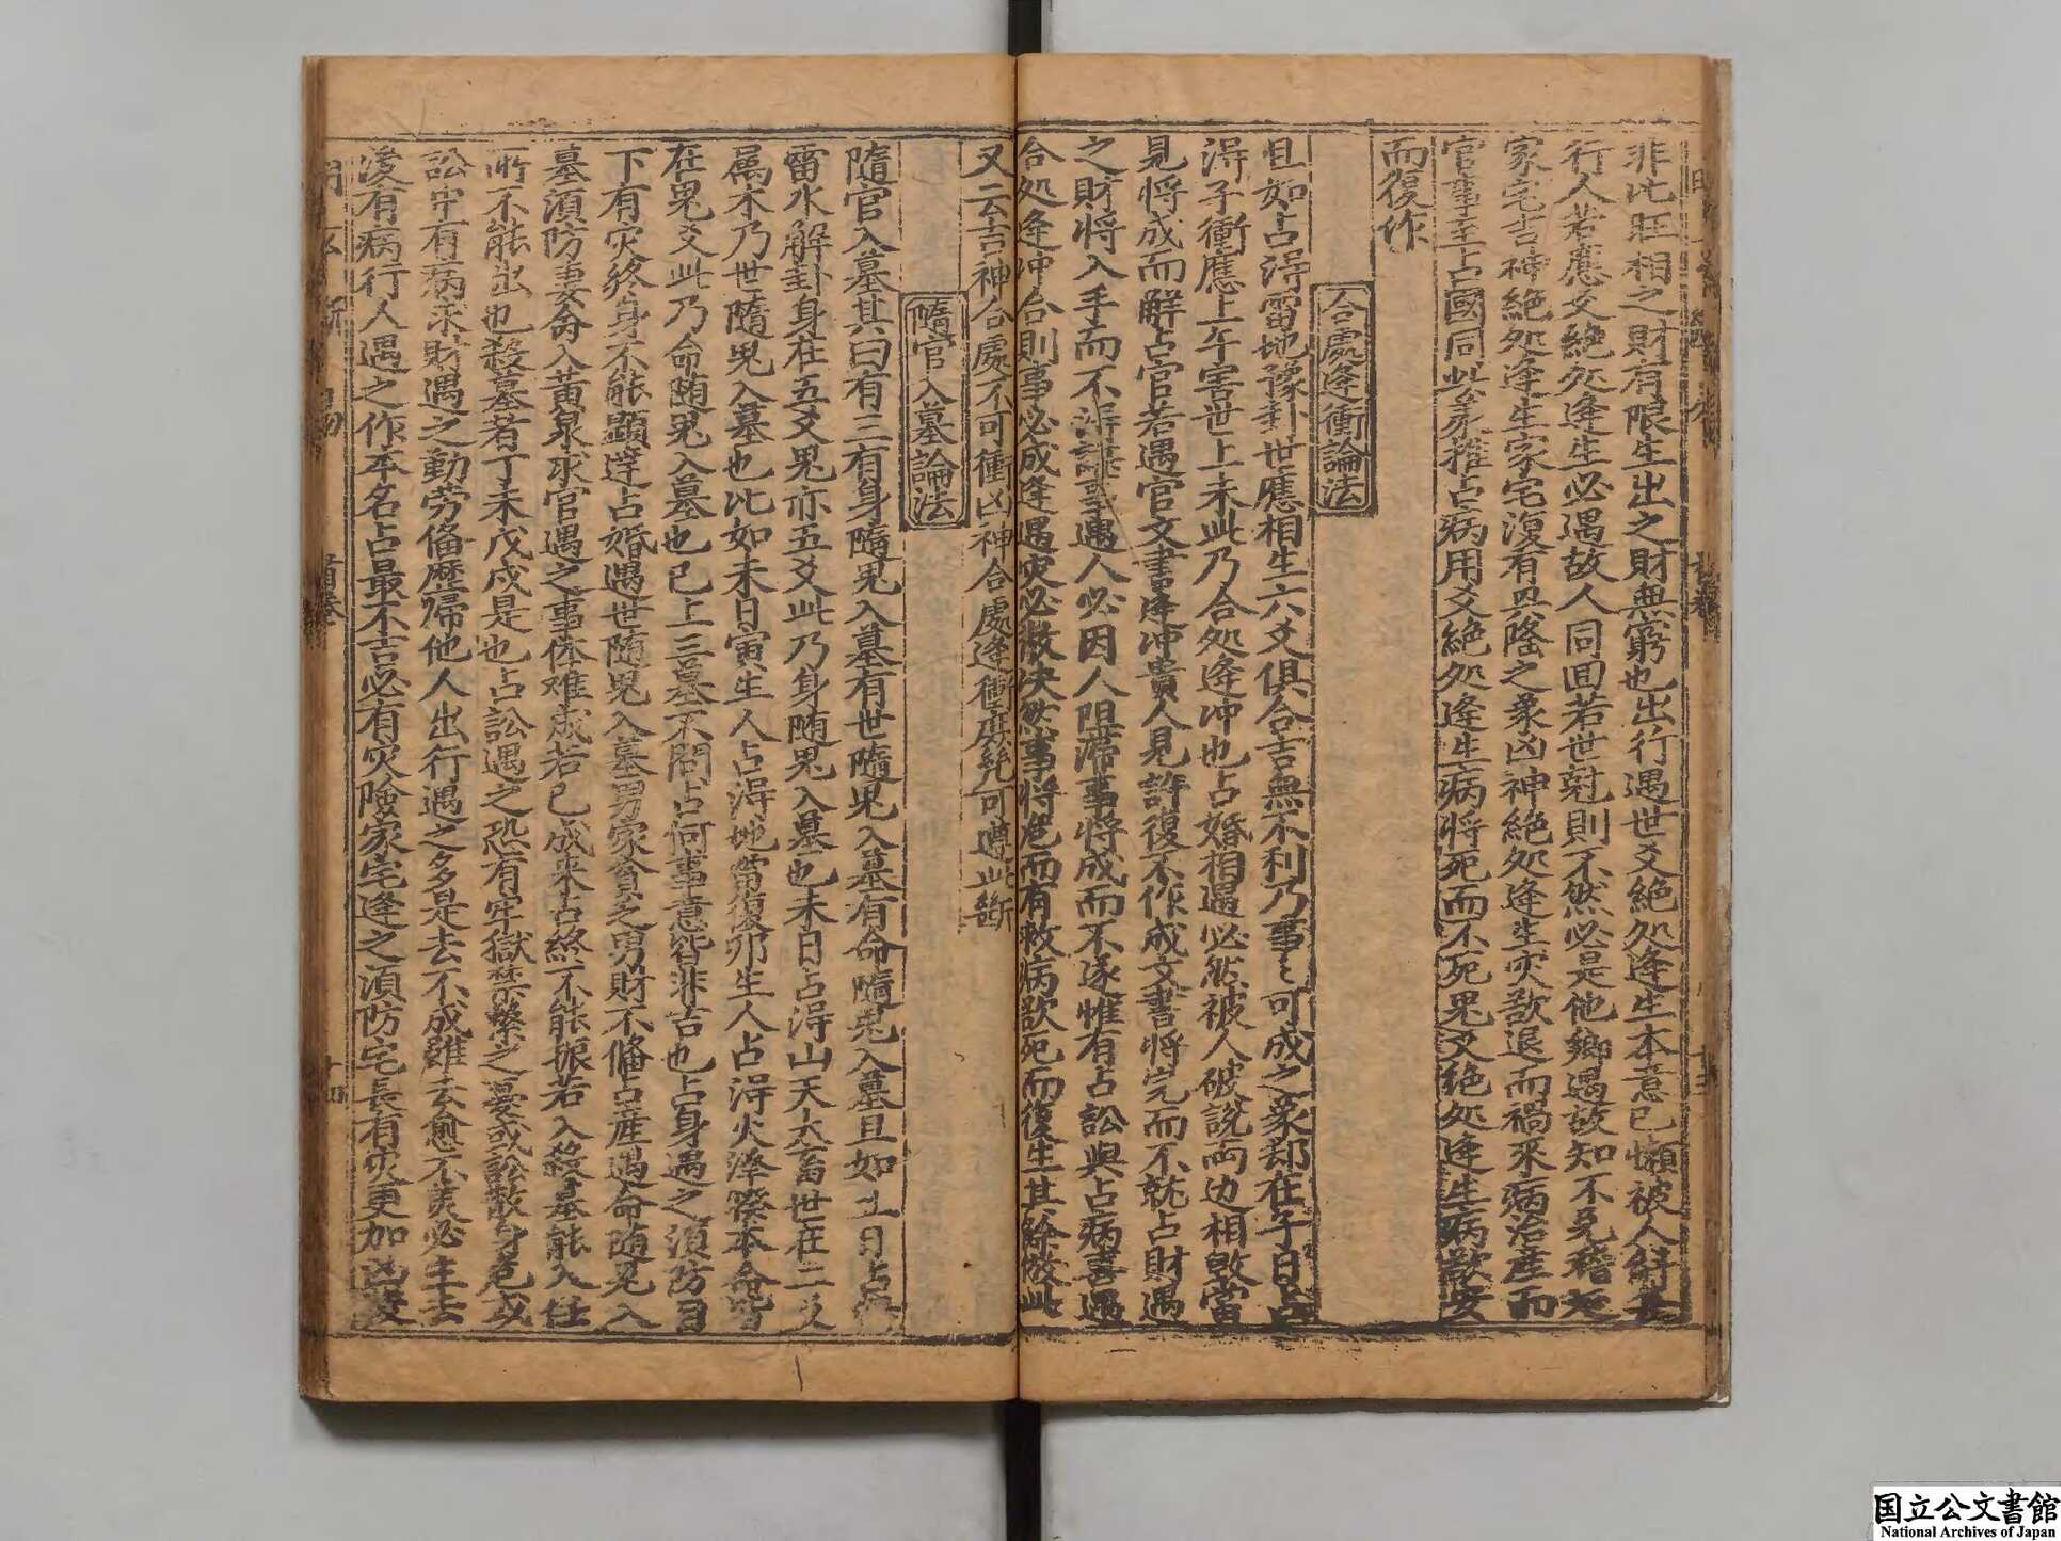 非比旺相之財有限生出之財無窮也出行遇世爻絶处逢生本意已懶被人糾去
行人若應爻絶处逢生必遇故人同囬若世尅則不然必是他鄉遇故知不免稽迟
家宅吉神絶処逢生家宅復有興隆之象凶神絶処逢生灾欲退而禍来病治産而
官事至占國同此象推占病用爻絶処逢生病將死而不死鬼爻絶处逢生病欲安
而復作
合處逢衝論法
且如占淂雷地豫卦世應相生六爻俱合吉無不利乃事〻可成之象却在午日占
淂子衝應上午害世上未此乃合処逢冲也占婚相遇必然被人破說両边相敗當
見將成而觧占官若遇官文書逢冲貴人見許復不作成文書將完而不就占財遇
之財將入手而不淂謀事遇人必因人阻滞事將成而不遂惟有占訟與占病喜遇
合処逢冲合則事必成逢遇灾必散决然事將危而有救病欲死而復生其餘倣此
又云吉神合處不可衝凶神合處逢衝庻㡬可遵此斷
隨官入墓論法
隨官入墓其曰有三有身隨鬼入墓有世隨鬼入墓有命隨鬼入墓且如丑日占淂
雷水解卦身在五爻鬼亦五爻此乃身随鬼入墓也未日占淂山天大畜世在二爻
属木乃世隨鬼入墓也比如未日寅生人占淂地雷復卯生人占淂火泽睽本命皆
在鬼爻此乃命随鬼入墓也已上三墓不問占何事意皆非吉也占身遇之須防目
下有灾終身不能顯達占婚遇世随鬼入墓男家貧乏男財不俻占産遇命随鬼入
墓須防妻𠕋入黄泉求官遇之事体难成若已成来占終不能振若入殺墓能入任
所不能出也殺墓者丁未戊戌是也占訟遇之恐有牢獄禁繫之憂或訟散身危或
訟牢有病求財遇之勤劳俻歷帰他人出行遇之多是去不成雖去愈不美必生去
後有病行人遇之作牢名占最不吉必有灾險家宅逢之須防宅長有灾更加凶殺